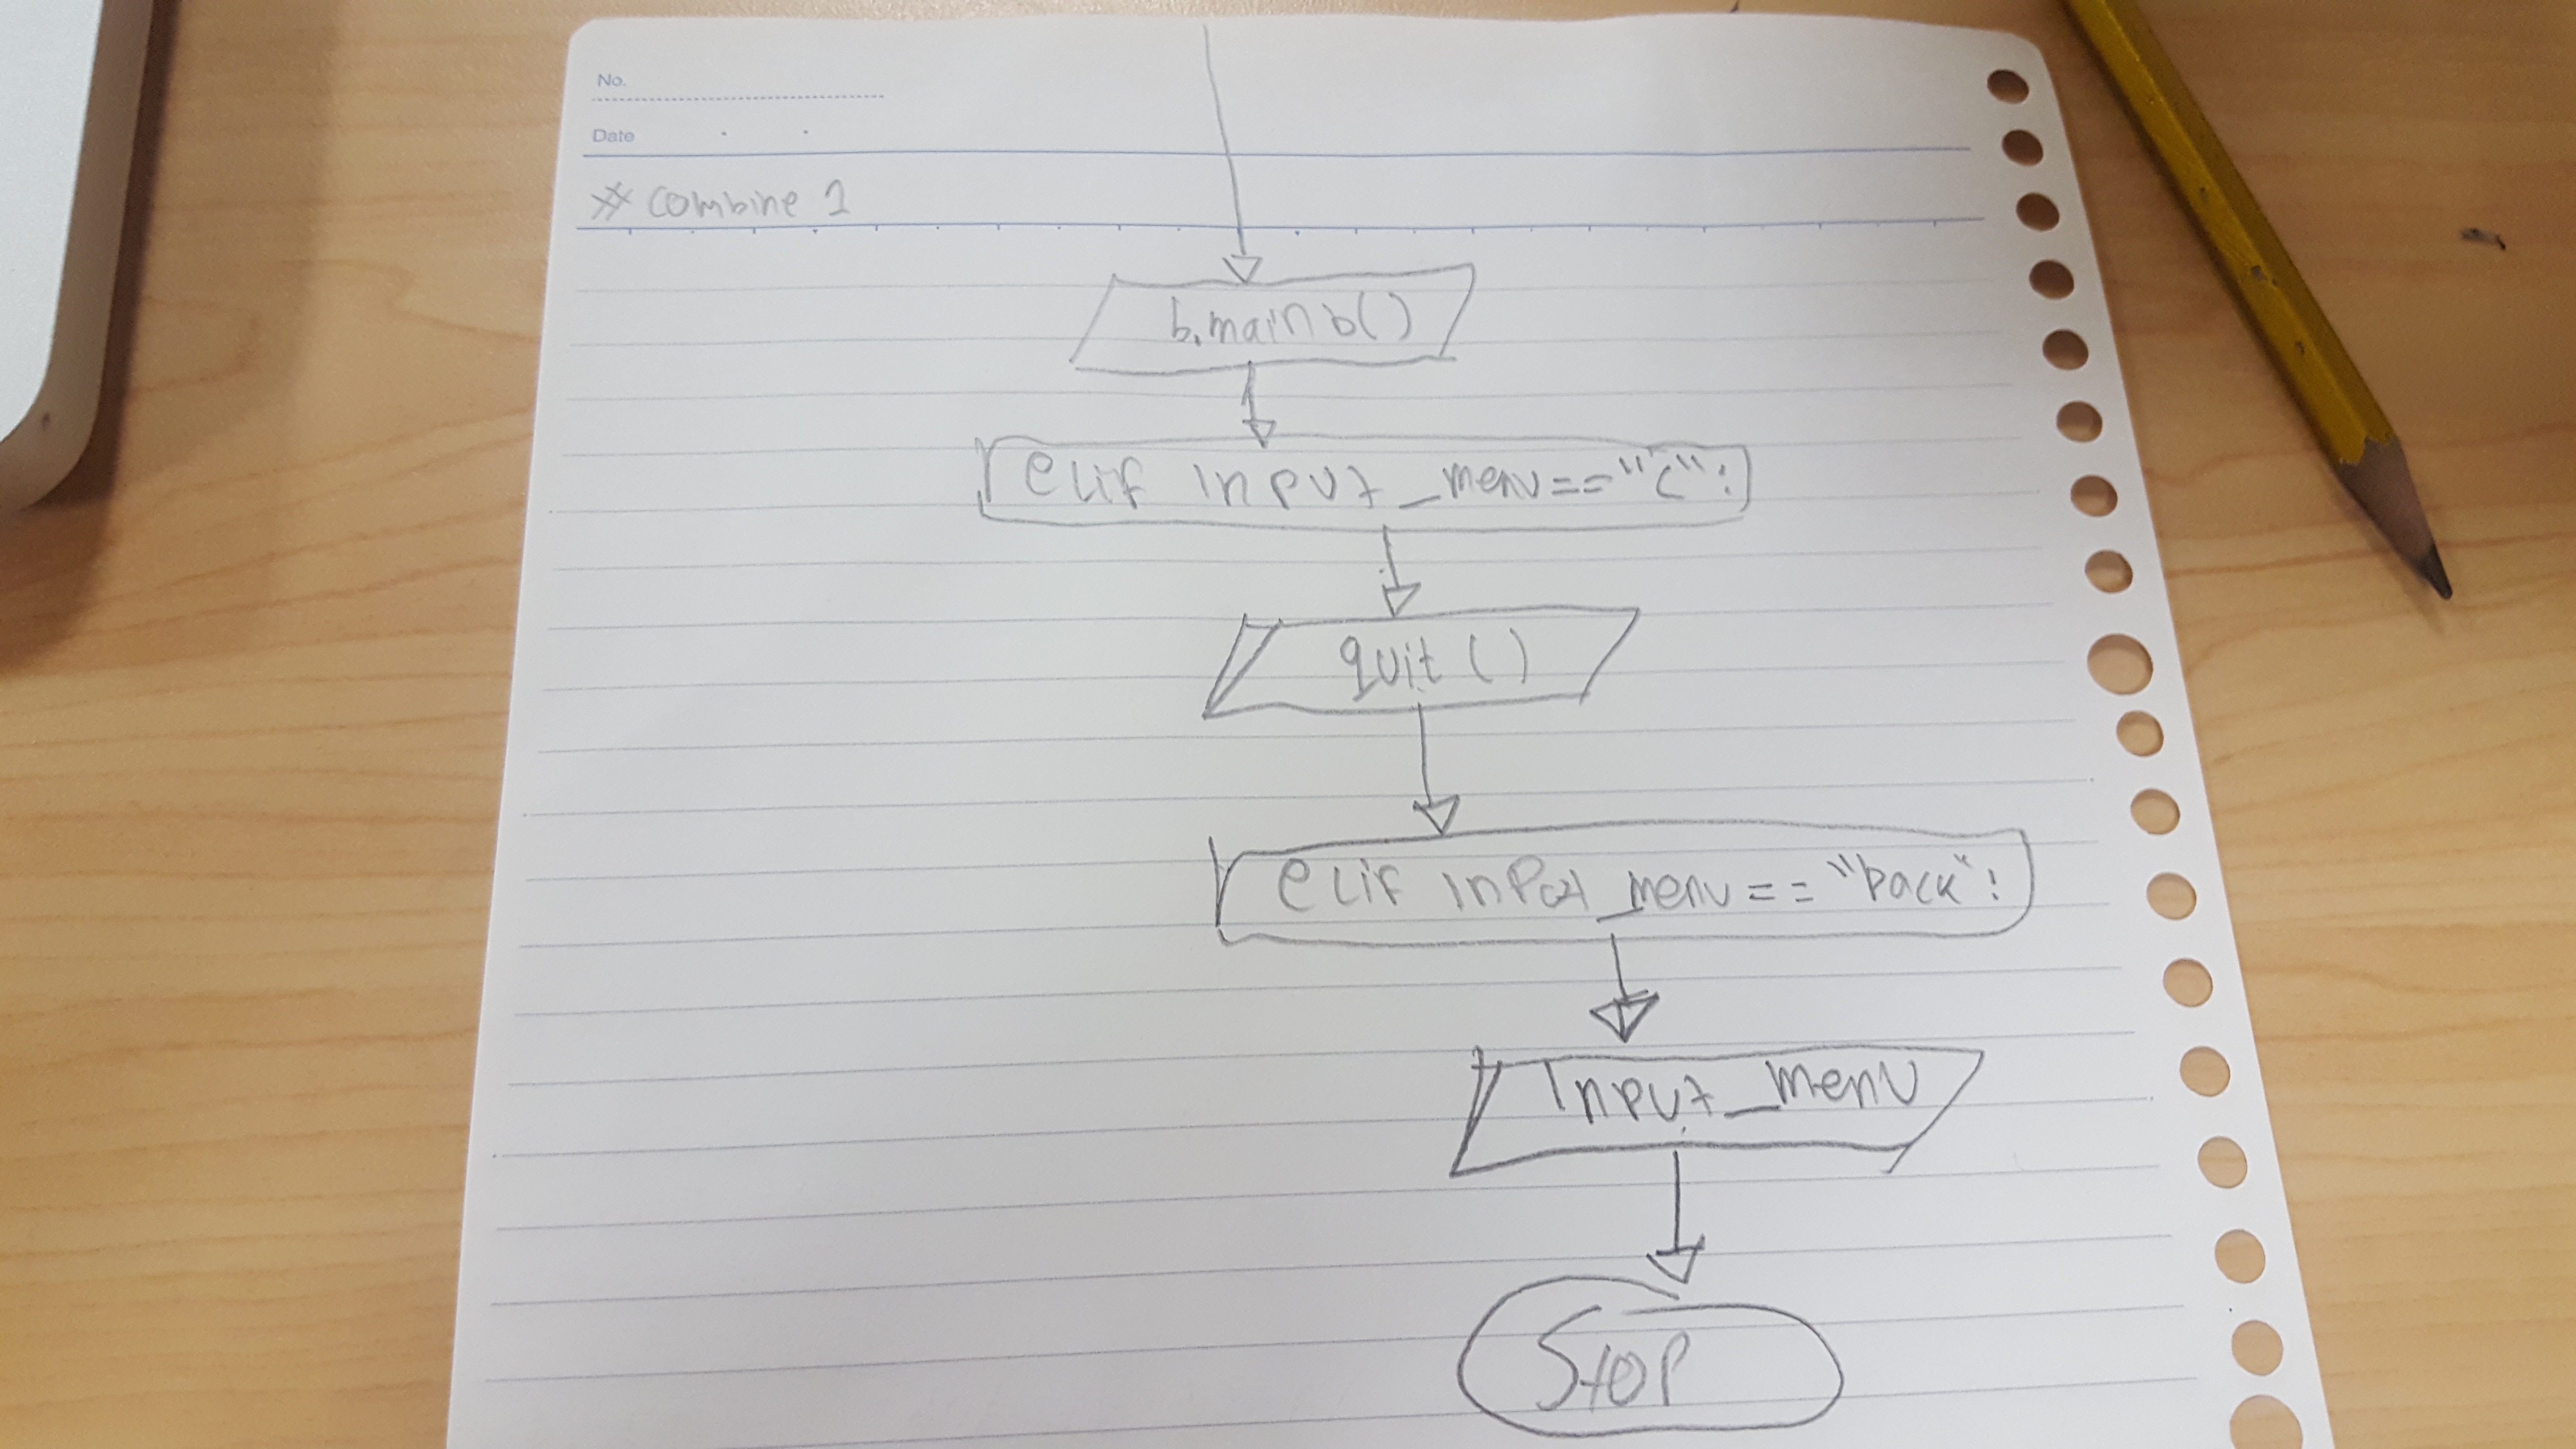 No.
Date
* combine 1
b.mainb()
elif input_menu=="c":
quit()
elif input_menu=="back":
Input_menu
Stop